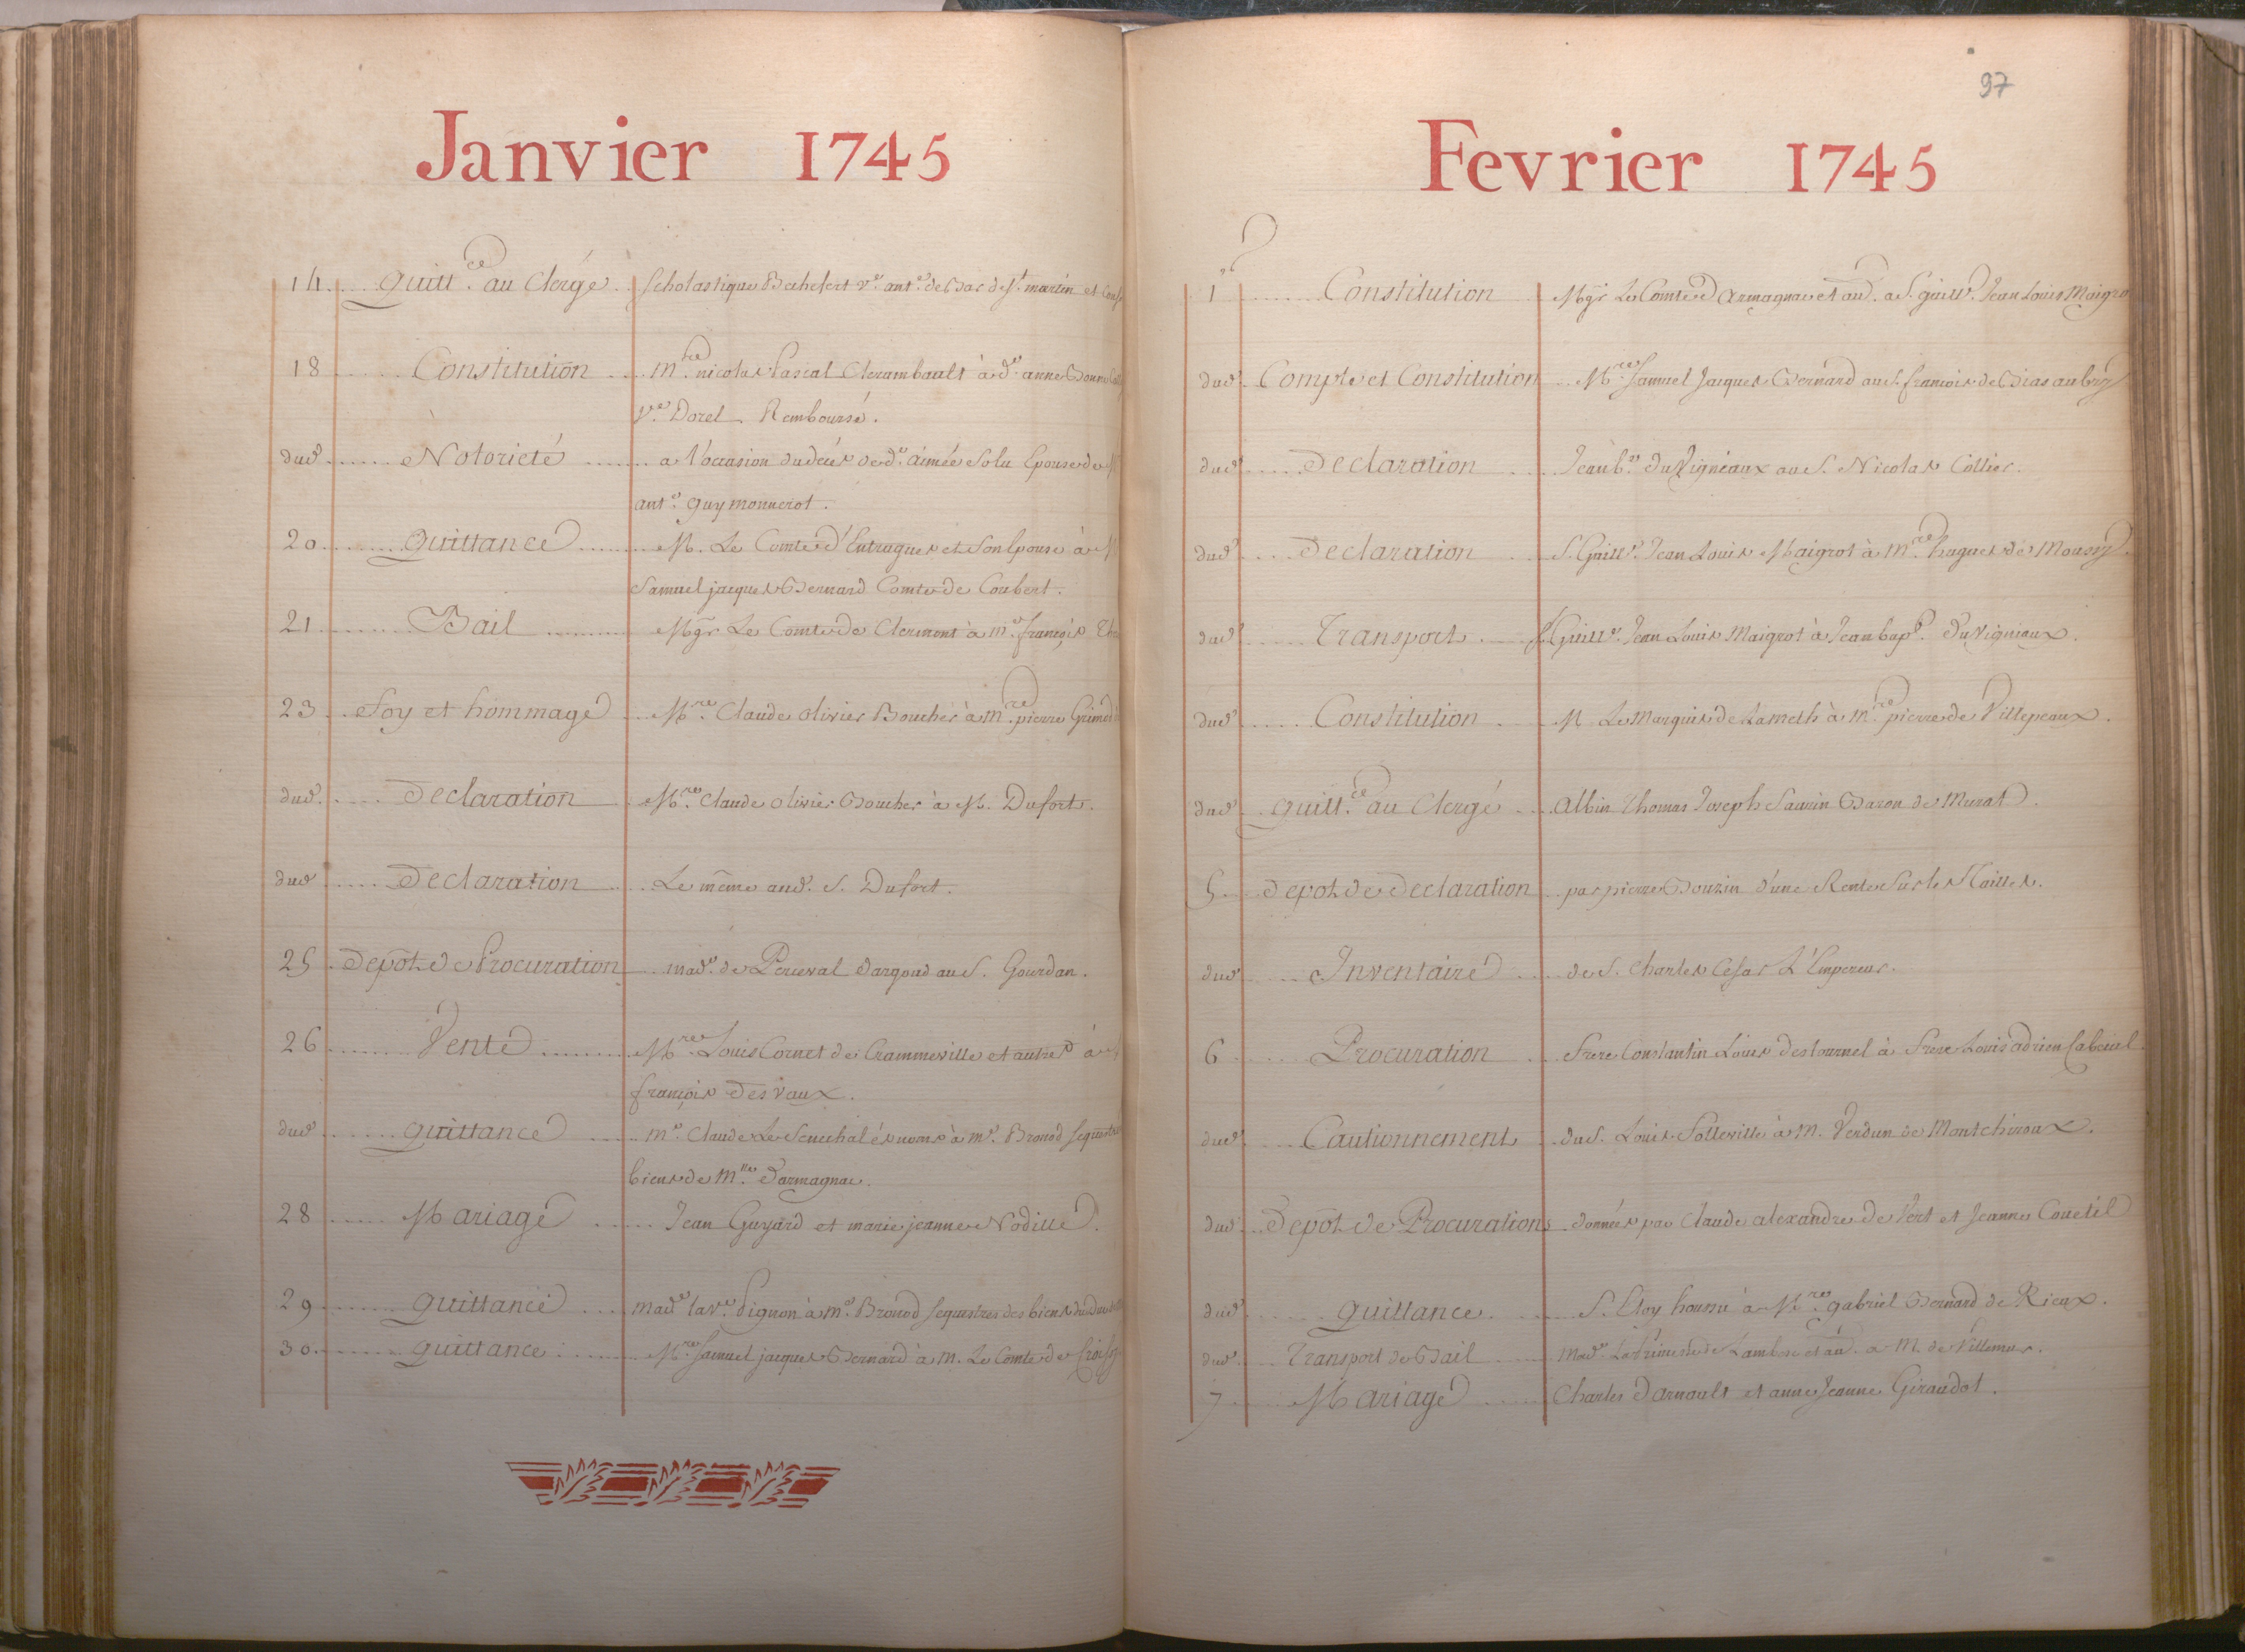 Janvier 1745
14 quitt.ce au Clergé Scholastique v.e ant.e de Bar de S.t martin et
18 Constitution M.re nicolas Pascal Clerambault à d.e anne
V.ve Dorel Remboursé.
dud. Notorieté a l'occasion du deces de d.e aimée Solu Epouse de
ant.e guy monnerot.
20 quittance M. Le Comte d'Entragues et Son Epouse à M
Samuel jacques Bernard Comte de Coubert.
21 Bail Mgr Le Comte de Clermont à m.e françois
23 foy et hommage M.re Claude olivier Boucher à m.re pierre Grimod
dud. Declaration M.re Claude olivier Boucher à M. Dufort.
dud. Declaration Le même aud. S. Dufort.
25 Depot de Procuration mad.e de Perceval Dargoud au S. Gourdan.
26 Vente M.re Louis Cornet de Crammeville et autres à
françois Desvaux.
dud. quittance m.e Claude Le Senechal és noms à m.e Bronod
biens de M.lle d'armagnac.
28 Mariage Jean Guyard et marie jeanne Nodille.
29 quittance mad.e la v.e Pignon à m.e Bronod Sequestres des biens du
30 quittance M.re Samuel jacques Bernard à m. Le Comte de
97
Fevrier 1745
1.er Constitution Mgr Le Comte d'Armagnac et au. a S. guill.e Jean Louis Maigro
dud. Compte et Constitution M.re Samuel Jacques Bernard au S. françois de Bias aubry
dud. Declaration Jean b.te du Vigneaux au S. Nicolas Collier.
dud. Declaration S. Guill.e Jean Louis Maigrot à m.re hugues de Moussy.
dud. Transport S. Guill.e Jean Louis Maigrot à Jean bap.t du Vigneaux.
dud. Constitution M Le Marquis de Lameth à m.re pierre de Villepeaux.
dud. quitt.ce au Clergé Albin Thomas Joseph Saurin Baron de Murat.
5 depot de Declaration par pierre Bouzin d'une Rente Sur les Tailles.
dud. Inventaire de S. Charles Cesar L'Empereur.
6 Procuration frere Constantin Louis destourmel à frere Louis adrien
dud. Cautionnement du S. Louis Solleville à M. Verdun de Montchiroux.
dud. Depot de Procurations données par Claude alexandre de Vert et Jeanne Couetil
dud. quittance S. Eloy à M.re gabriel Bernard de Rieux.
dud. Transport de Bail mad.e La Princesse de Lambesc et au. a M. de Villemur.
7 Mariage Charles Darnoult et anne Jeanne Giraudot.